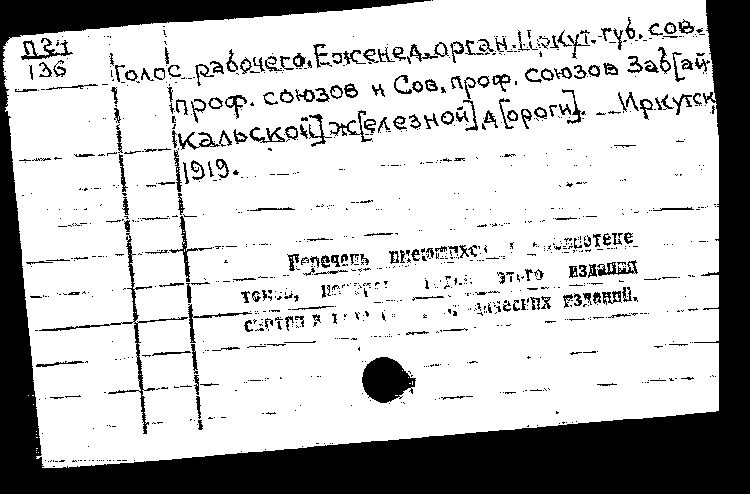 П24
136
Голос рабочего. Еженед. орган. Иркут. губ. сов.
проф. союзов и Сов. проф. союзов Заб[ай-
кальской] ж[елезной] д[ороги]. Иркутск
1919.
Перечень имеющихся в библиотеке
томов, этого издания
смотри в изданий.